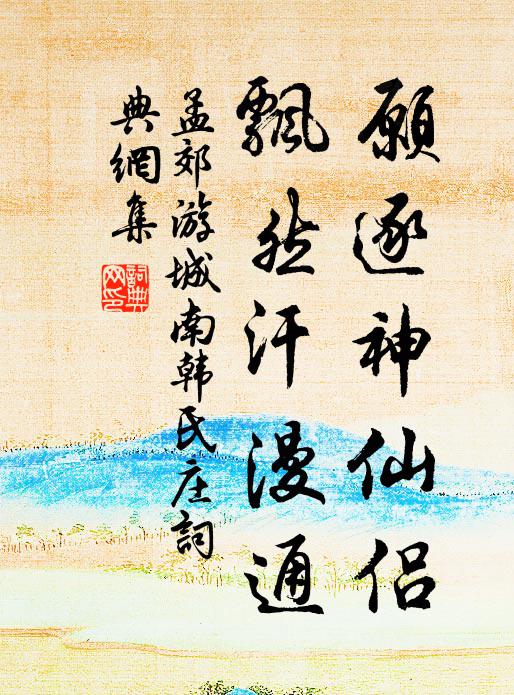 願逐神仙侣
飄然汗漫通
孟郊游城南韩氏庄詞
典網集
詞典
网印